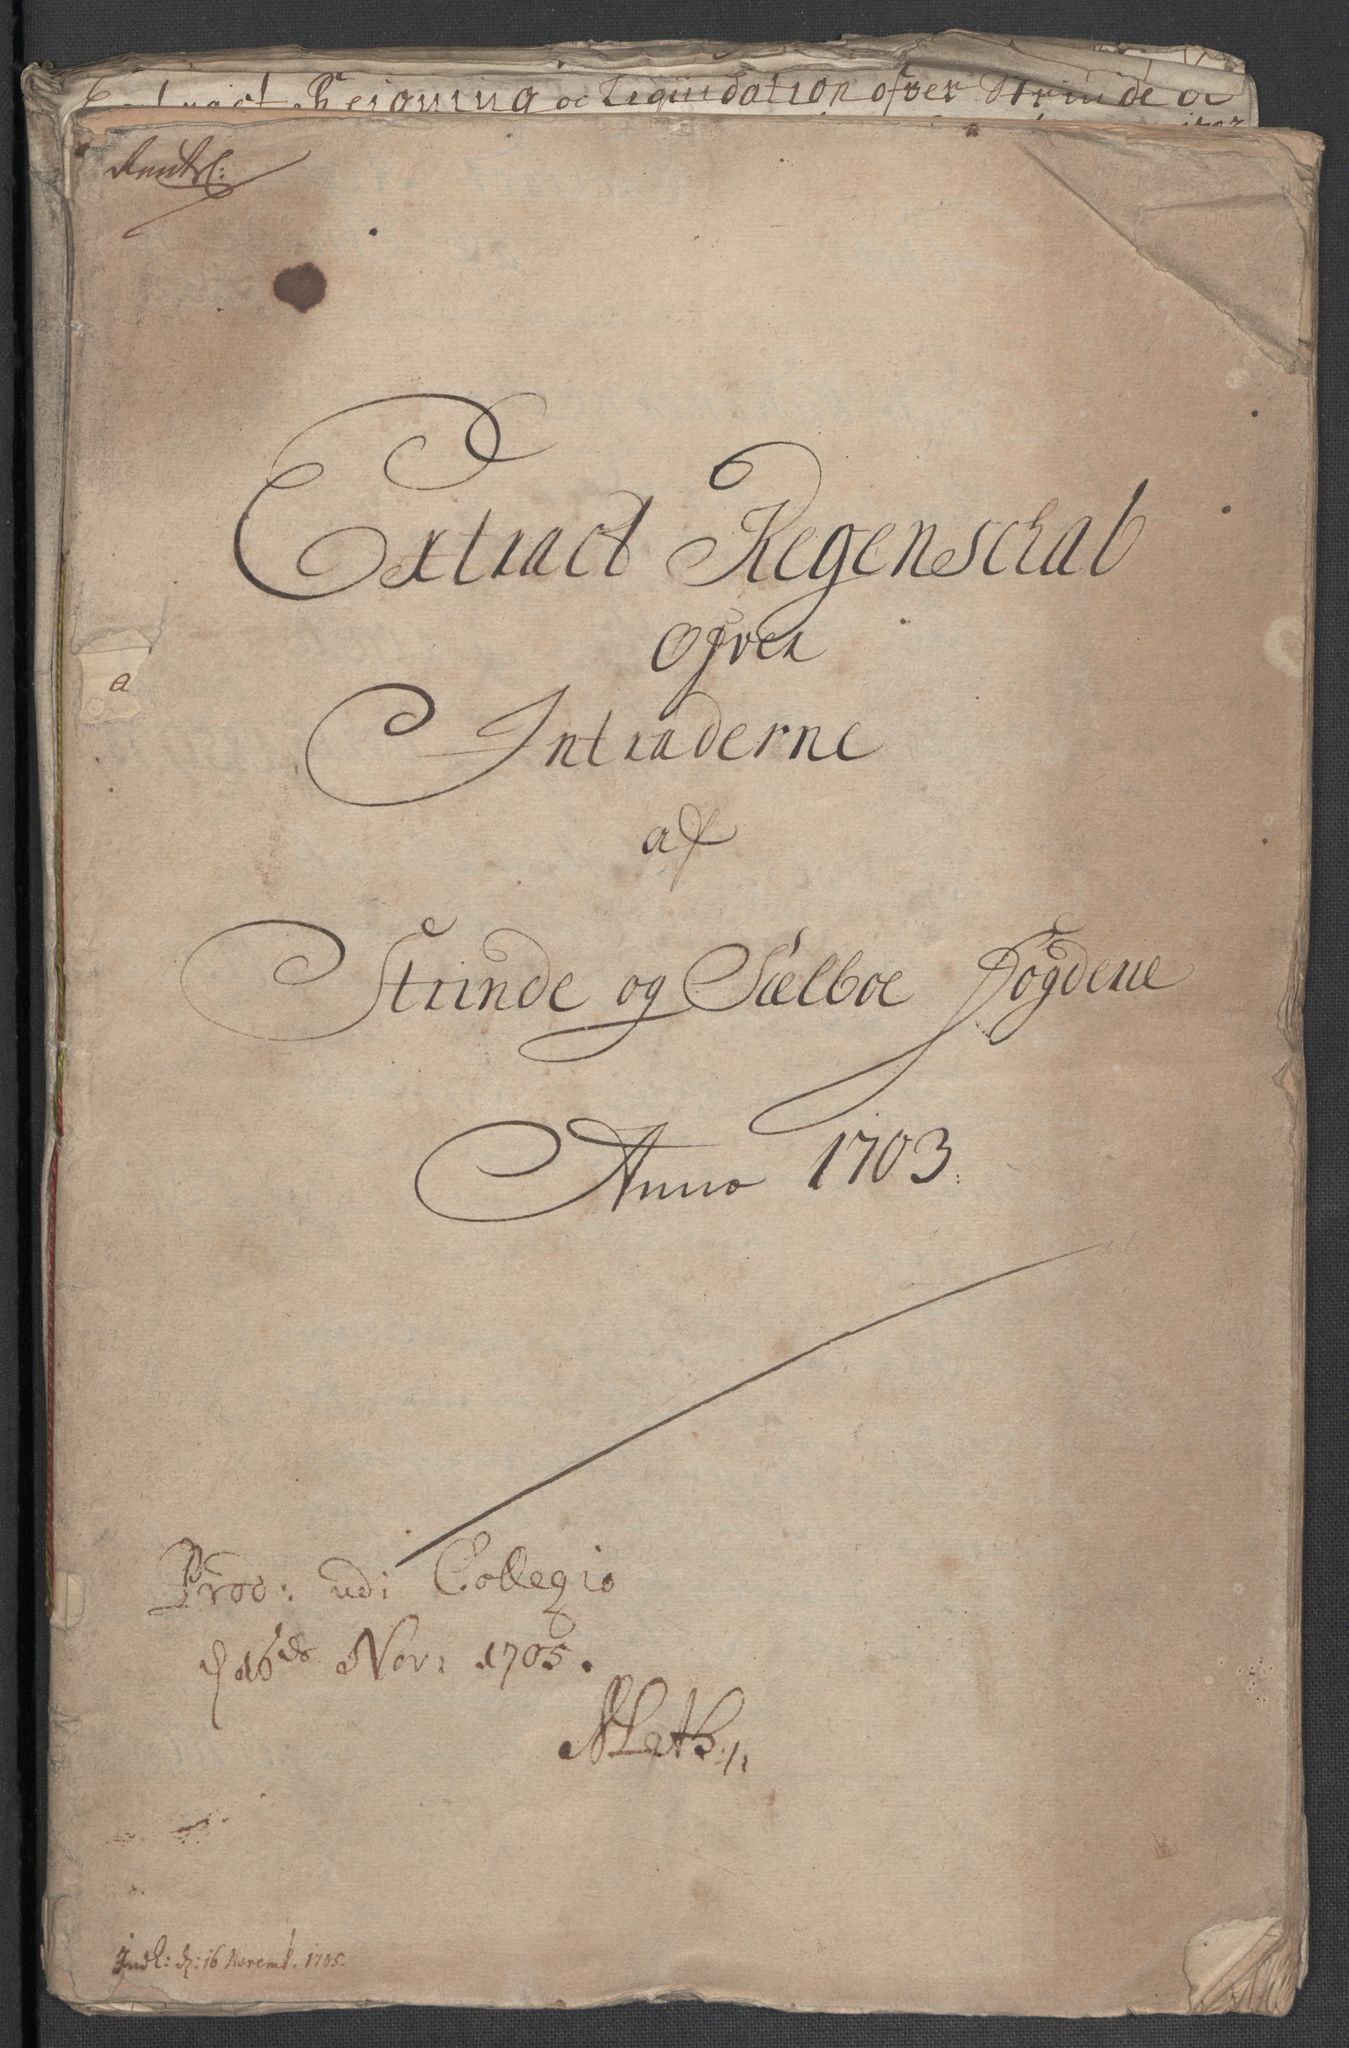 Reigning oc Liqvidation ofver Strinde oc
1703
Extract Regenschab
Ofver
Intraderne
af
Strinde og Sælboe Fögderie
Anno 1703.
a
Prod: udi Collegio
d 16de Nov: 1705.
Indl: d: 16 Novemb. 1705.